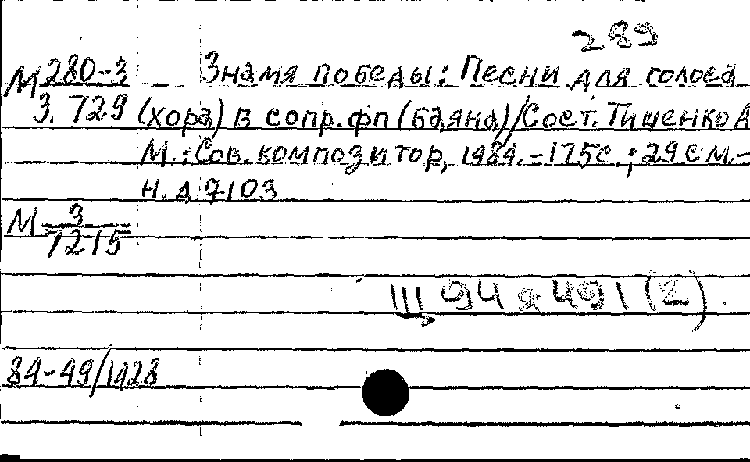 289
М 280-3 Знамя победы: Песни для голоса
3.729 (хора) в сопр. фп (баяна)/Сост. Тищенко А
М.: Сов. композитор, 1984. - 175с.; 29см. -
Н.д 7103
М 3
7215
Щ 94 я 491 (2)
84-49/1428